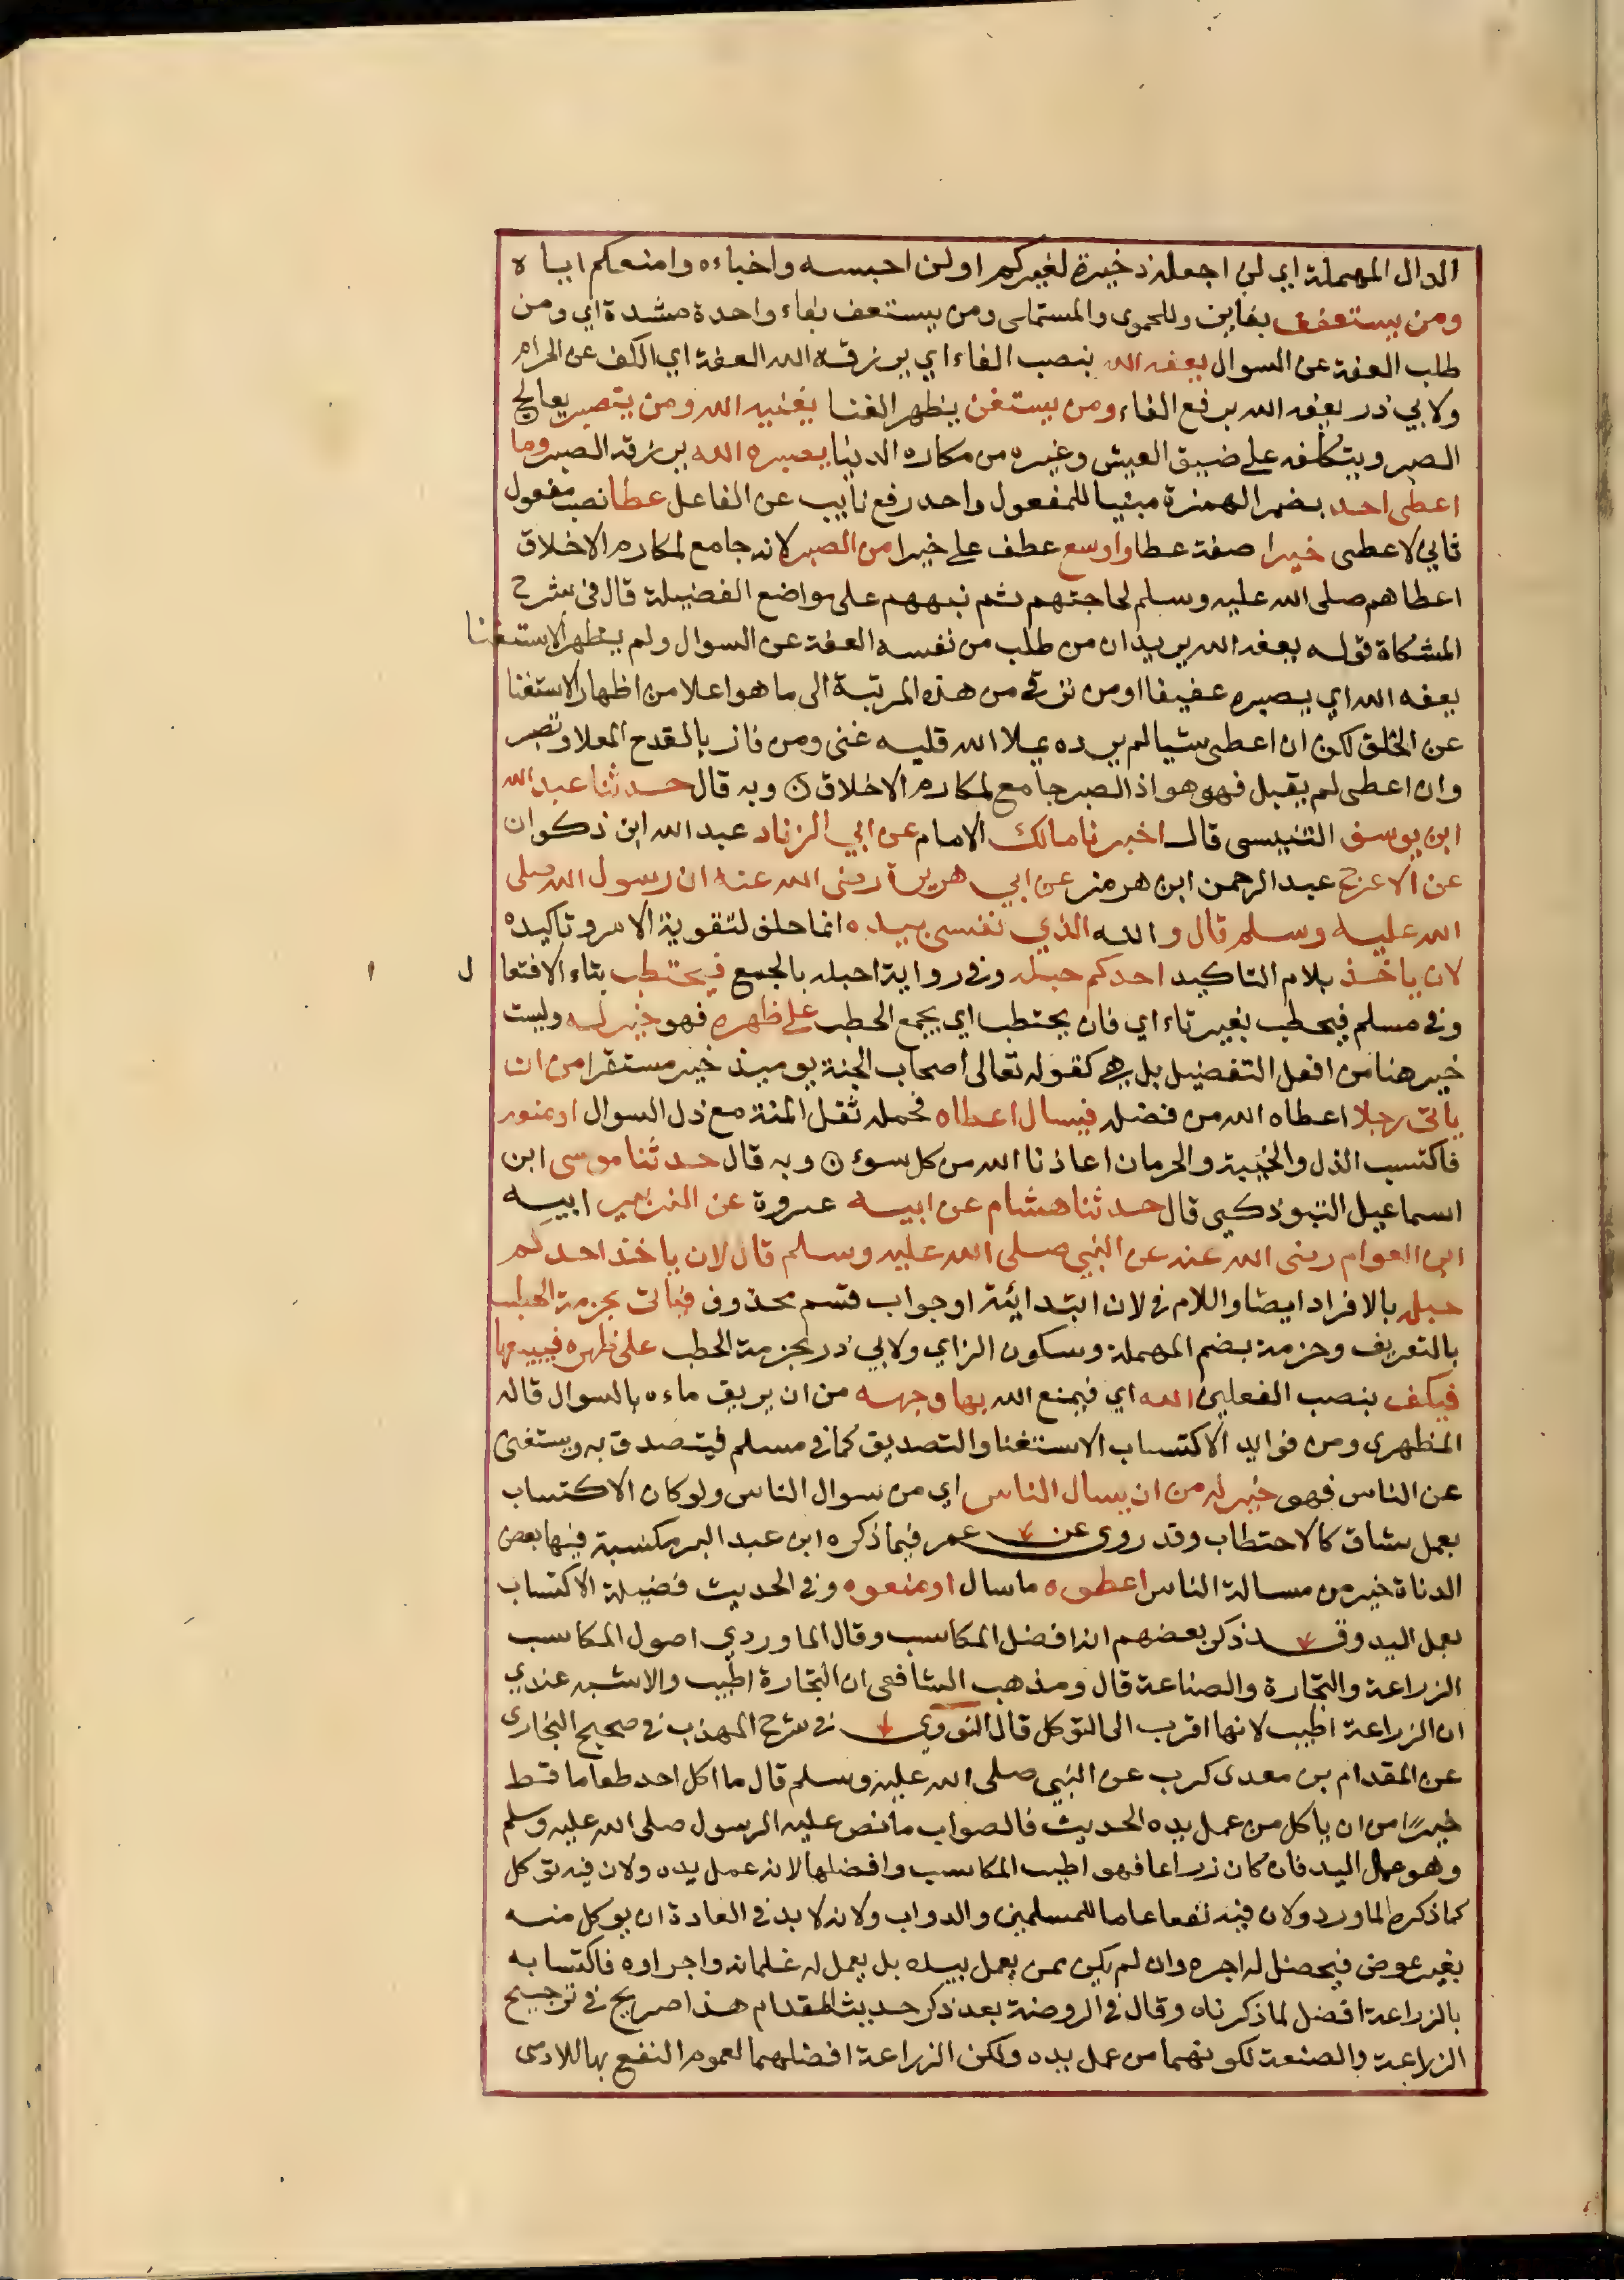 الدال المهملة اي لن اجعله ذخيرة لغيركم او لن احبسه واخباءه وامنعكم اياه
ومن يستعفف بفاين وللحموى والمستملى ومن يستعف بفاء واحدة مشددة اي ومن
طلب العفة عن السوال يعفه الله بنصب الفاء اي يرزقه الله العفة اي الكف عن الحرام
ولابي ذر يعفه الله برفع الفاء ومن يستغن يظهر الغنا يغنيه الله ومن يتصبر يعالج
الصبر ويتكلفه على ضيق العيش وغيره من مكاره الدنيا يصبره الله يرزقه الصبر وما
اعطى احد بضم الهمزة مبنيا للمفعول واحد رفع نايب عن الفاعل عطا نصب مفعول
ثاني لاعطى خيرا صفة عطا واوسع عطف على خيرا من الصبر لانه جامع لمكارم الاخلاق
اعطاهم صلى الله عليه وسلم لحاجتهم ثم نبههم على مواضع الفضيلة قال في شرح
المشكاة قوله يعفه الله يريد ان من طلب من نفسه العفة عن السوال ولم يظهر الاستغنا
يعفه الله اي يصيره عفيفا ومن ترقى من هذه المرتبة الى ما هو اعلا من اظهار الاستغنا
عن الخلق لكن ان اعطى شيا لم يرده يملا الله قلبه غنى ومن فاز بالقدح المعلا وتصبر
وان اعطى لم يقبل فهو هو اذ الصبر جامع لمكارم الاخلاق ن وبه قال حدثنا عبد الله
ابن يوسف التنيسى قال اخبرنا مالك الامام عن ابي الزناد عبد الله ابن ذكوان
عن الاعرج عبد الرحمن ابن هرمز عن ابي هريرة رضى الله عنه ان رسول الله صلى
الله عليه وسلم قال والله الذي نفسى بيده انما حلف لتقوية الامر وتاكيده
لان ياخذ بلام التاكيد احدكم حبله وفى رواية احبله بالجمع فيحتطب بتاء الافتعال
وفى مسلم فيحطب بغير تاء اي فان يحتطب اي يجمع الحطب على ظهره فهو خير له وليست
خير هنا من افعل التفضيل بل هي كقوله تعالى اصحاب الجنة يوميذ خير مستقرا من ان
ياتى رجلا اعطاه الله من فضله فيسال اعطاه فحمله ثقل المنة مع ذل السوال او منعه
فاكتسب الذل والخيبة والحرمان اعاذنا الله من كل سوء ن وبه قال حدثنا موسى ابن
اسماعيل التبوذكي قال حدثنا هشام عن ابيه عروة عن الزبير ابيه
ابن العوام رضى الله عنه عن النبي صلى الله عليه وسلم قال لان ياخذ احدكم
حبله بالافراد ايضا واللام فى لان ابتدائية او جواب قسم محذوف فياتى بحزمة الحطب
بالتعريف وحزمة بضم المهملة وسكون الزاي ولابي ذر بحزمة الحطب على ظهره فيبيعها
فيكف بنصب الفعلين الله اي فيمنع الله بها وجهه من ان يريق ماءه بالسوال قاله
المظهرى ومن فوايد الاكتساب الاستغنا والتصديق كما فى مسلم فيتصدق به ويستغنى
عن الناس فهو خير له من ان يسال الناس اي من سوال الناس ولو كان الاكتساب
بعمل شاق كالاحتطاب وقد روى عن عمر فيما ذكره ابن عبد البر مكسبة فيها بعض
الدناة خير من مسالة الناس اعطوه ما سال او منعوه وفى الحديث فضيلة الاكتساب
بعمل اليد وقد ذكر بعضهم انه افضل المكاسب وقال الماوردي اصول المكاسب
الزراعة والتجارة والصناعة قال ومذهب الشافعى ان التجارة اطيب والاشبه عندي
ان الزراعة اطيب لانها اقرب الى التوكل قال النووي فى شرح المهذب فى صحيح البخارى
عن المقدام بن معدى كرب عن النبي صلى الله عليه وسلم قال ما اكل احد طعاما قط
خيرًا من ان ياكل من عمل يده الحديث فالصواب ما نص عليه الرسول صلى الله عليه وسلم
وهو عمل اليد فان كان زراعا فهو اطيب المكاسب وافضلها لانه عمل يده ولان فيه توكل
كما ذكره الماورد ولان فيه نفعا عاما للمسلمين والدواب ولانه لا بد فى العادة ان يوكل منه
بغير عوض فيحصل له اجره وان لم يكن ممن يعمل بيده بل يعمل له غلمانه واجراوه فاكتسابه
بالزراعة افضل لما ذكرناه وقال فى الروضة بعد ذكر حديث المقدام هذا صريح فى ترجيح
الزراعة والصنعة لكونهما من عمل يده ولكن الزراعة افضلهما لعموم النفع بها للادمى